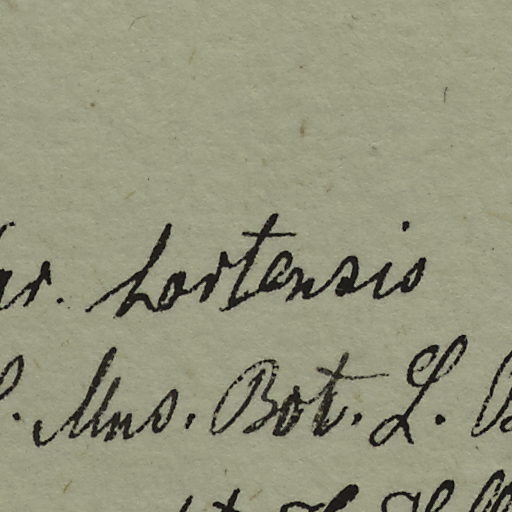 var. hortensis
Mus. Bot. L. B